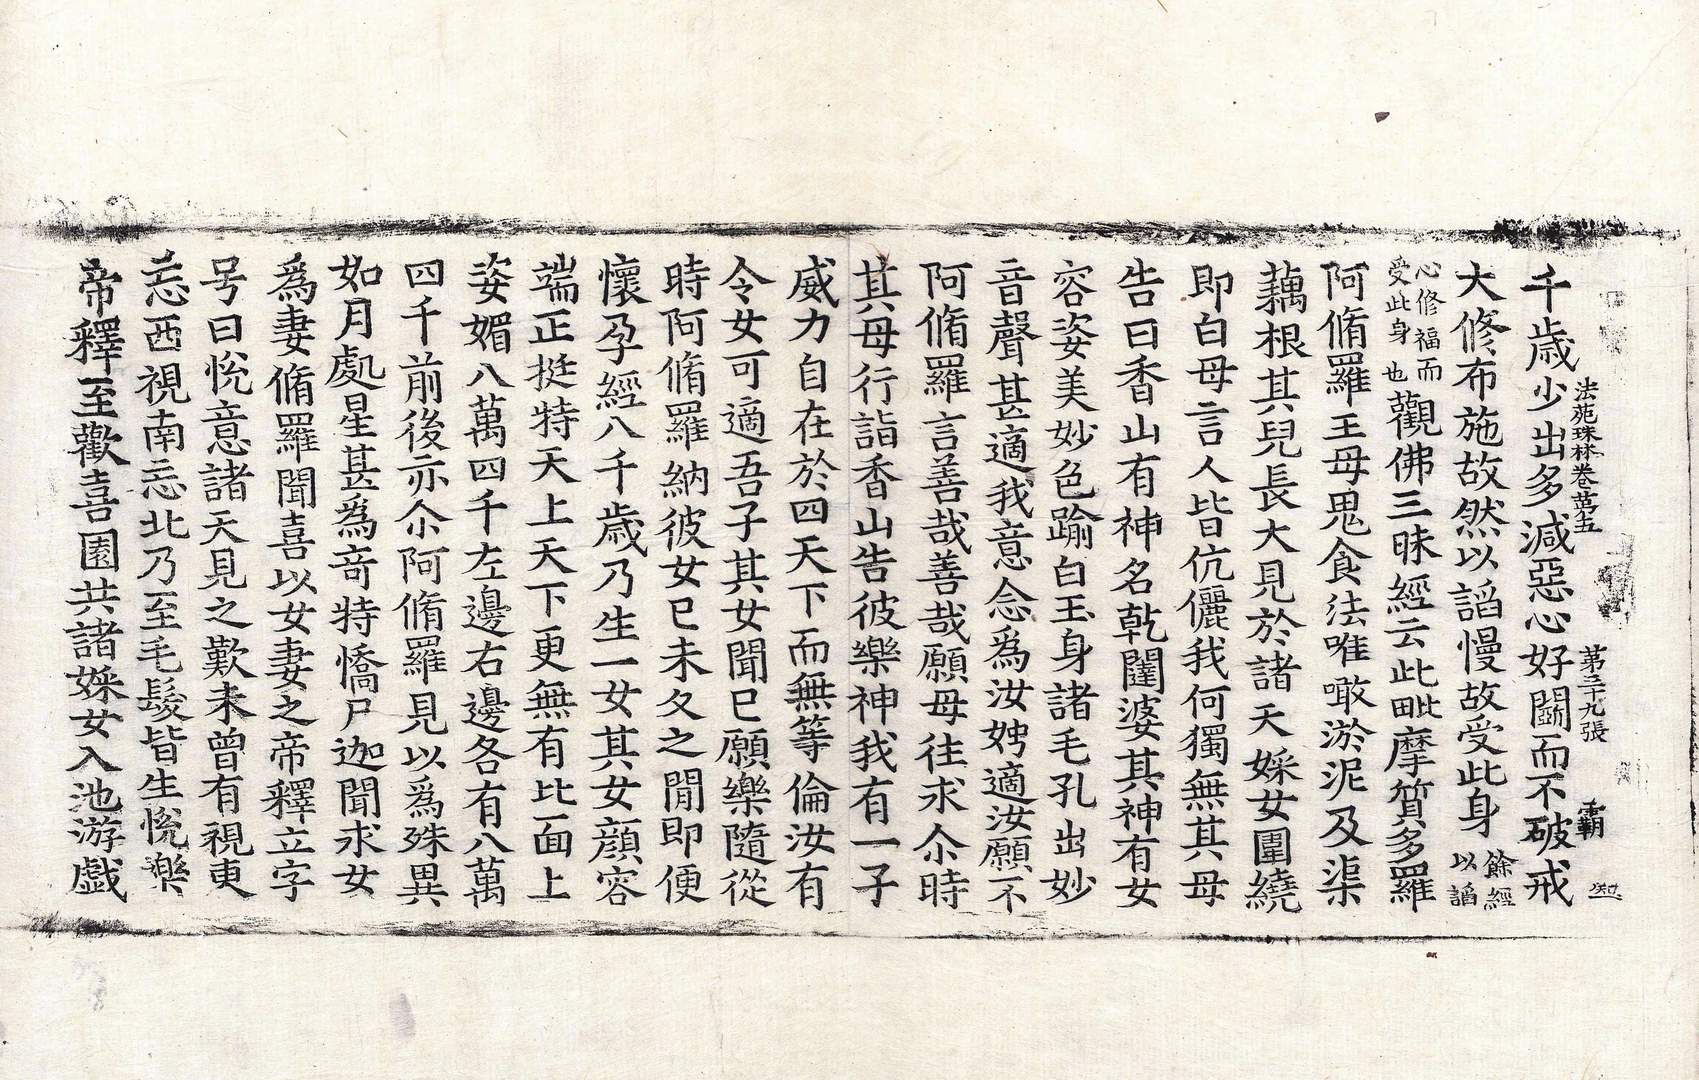 法苑珠林卷苐五 第三十九張 覇
千歲少出多減惡心好鬪而不破戒
大修布施故然以諂慢故受此身餘經以諂
心修福而受此身也觀佛三昧經云此毗摩質多羅
阿脩羅王母鬼食法唯噉淤泥及渠
藕根其兒長大見於諸天婇女圍繞
即白母言人皆伉儷我何獨無其母
告曰香山有神名乾闥婆其神有女
容姿美妙色踰白玉身諸毛孔出妙
音聲甚適我意念為汝娉適汝願不
阿脩羅言善哉善哉願母往求尒時
其母行詣香山告彼樂神我有一子
威力自在於四天下而無等倫汝有
令女可適吾子其女聞已願樂隨從
時阿脩羅納彼女已未久之間即便
懷孕經八千歲乃生一女其女顏容
端正挺特天上天下更無有比面上
姿媚八萬四千左邊右邊各有八萬
四千前後亦尒阿脩羅見以為殊異
如月處星甚為奇特憍尸迦聞求女
為妻脩羅聞喜以女妻之帝釋立字
号曰悅意諸天見之歎未曾有視東
忘西視南忘北乃至毛髮皆生悅樂
帝釋至歡喜園共諸婇女入池游戲